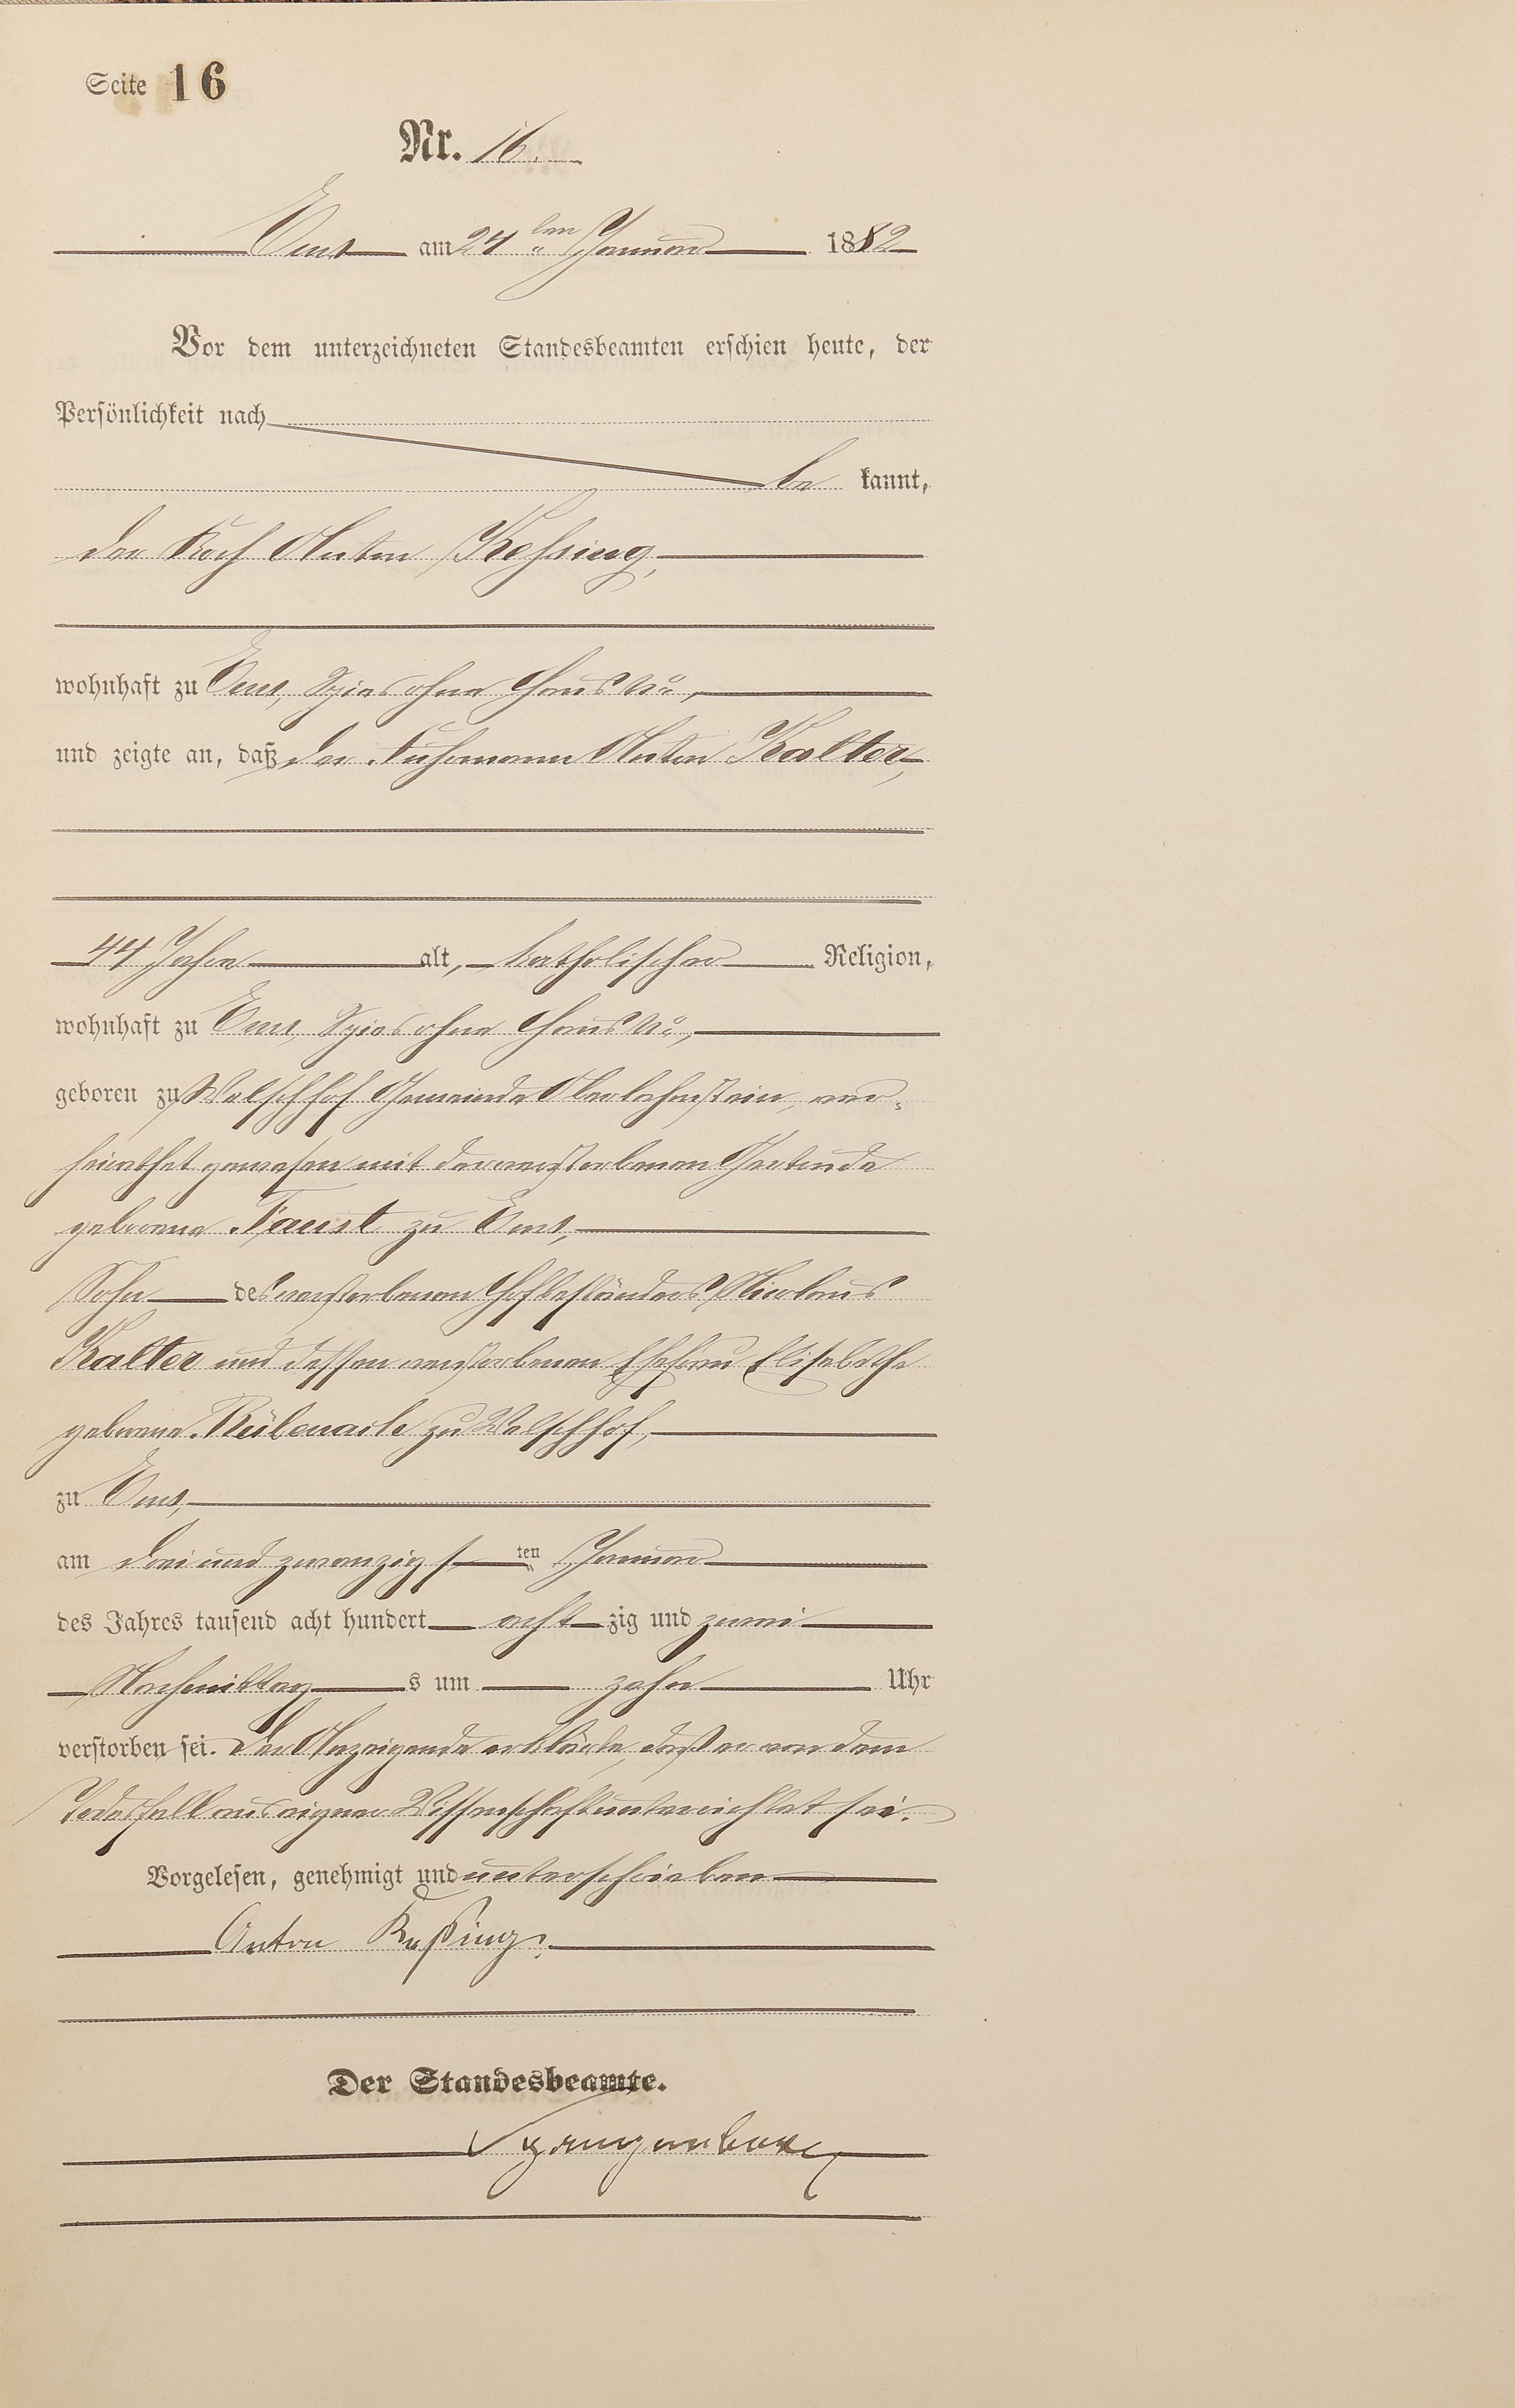 Seite 16
Nr. 16.
Ems am 24ten Januar 1882
Vor dem unterzeichneten Standesbeamten erschien heute, der
Persönlichkeit nach
be kannt,
der Koch Anton Kessing,
wohnhaft zu Ems, Spies ohne Haus No,
und zeigte an, daß der Fuhrmann Anton Kalter,
44 Jahre alt, katholischer Religion,
wohnhaft zu Ems, Spies ohne Haus No,
geboren zu Welschhof Gemeinde Oberlahnstein, ver-
heirathet gewesen mit der verstorbenen Gertrude
geborene Faust zu Ems,
Sohn des verstorbenen Hofbeständers Nicolaus
Kalter und dessen verstorbenen Ehefrau Elisabethe
geborene Rübenach zu Welschhof,
zu Ems,
am drei und zwanzigsten Januar
des Jahres tausend acht hundert acht zig und zwei
Nachmittags um zehn Uhr
verstorben sei. Der Anzeigende erklärte, daß er von dem
Todesfall aus eigner Wissenschaft unterrichtet sei.
Vorgelesen, genehmigt und unterschrieben
Anton Keßing.
Der Standesbeamte.